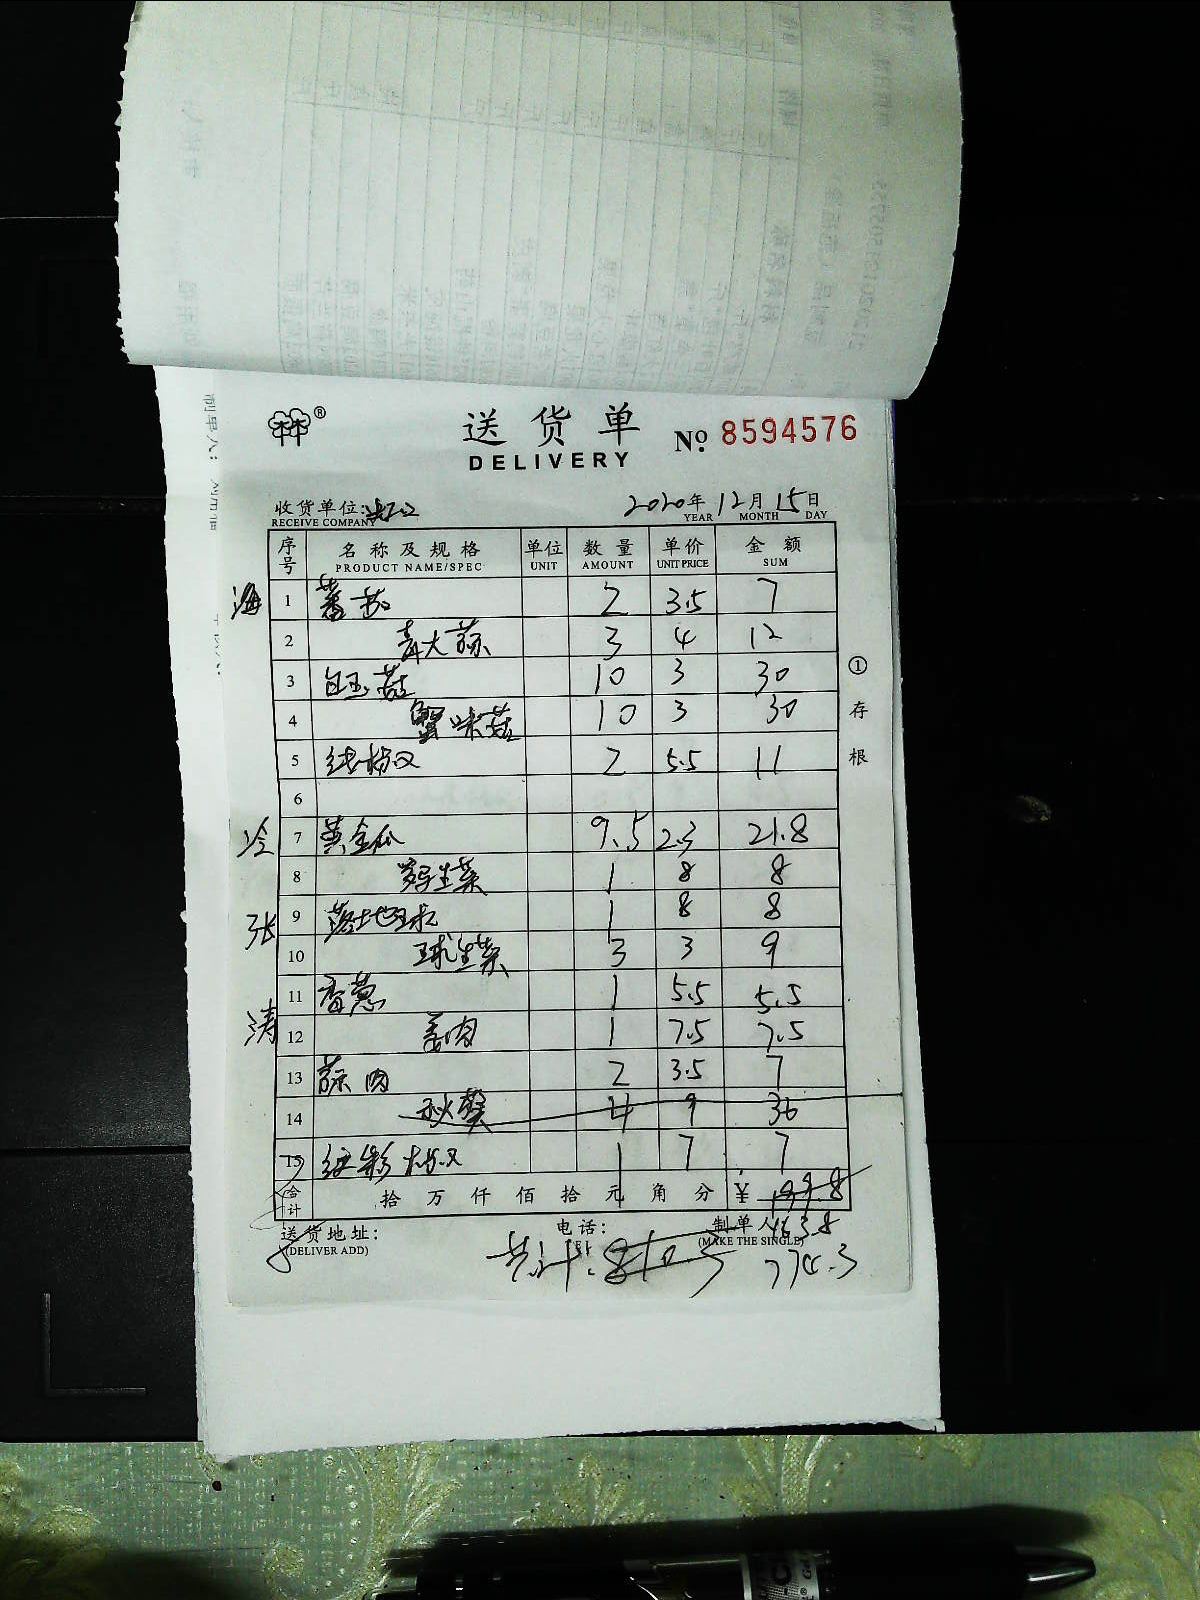 ®
送货单
DELIVERY
No. 8594576
收货单位:
RECEIVE COMPANY
2020年12月15日
YEAR MONTH DAY
序号 名称及规格 单位 数量 单价 金额
PRODUCT NAME/SPEC UNIT AMOUNT UNIT PRICE SUM
海 1 蕃茄 2 3.5 7
2 青大蒜 3 4 12
3 白玉菇 10 3 30
4 蟹味菇 10 3 30
5 2 5.5 11
6
冷 7 黄金瓜 9.5 2.3 21.8
8 罗马生菜 1 8 8
张 9 落地球 1 8 8
10 球生菜 3 3 9
11 香葱 1 5.5 5.5
涛 12 姜肉 1 7.5 7.5
13 蒜肉 2 3.5 7
14 秋葵 4 9 36
15 红彩椒 1 7 7
合计 拾万仟佰拾元角分 ¥ 199.8
163.8
送货地址: 电话: 制单人
(DELIVER ADD) (MAKE THE SINGLE)
共计:810.5 774.3
①存根